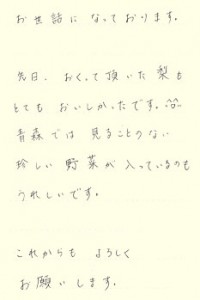 お世話になっております。
先日、おくって頂いた梨も
とても おいしかったです。^^
青森では 見ることのない
珍しい 野菜が 入っているのも
うれしいです。
これからも よろしく
お願いします。